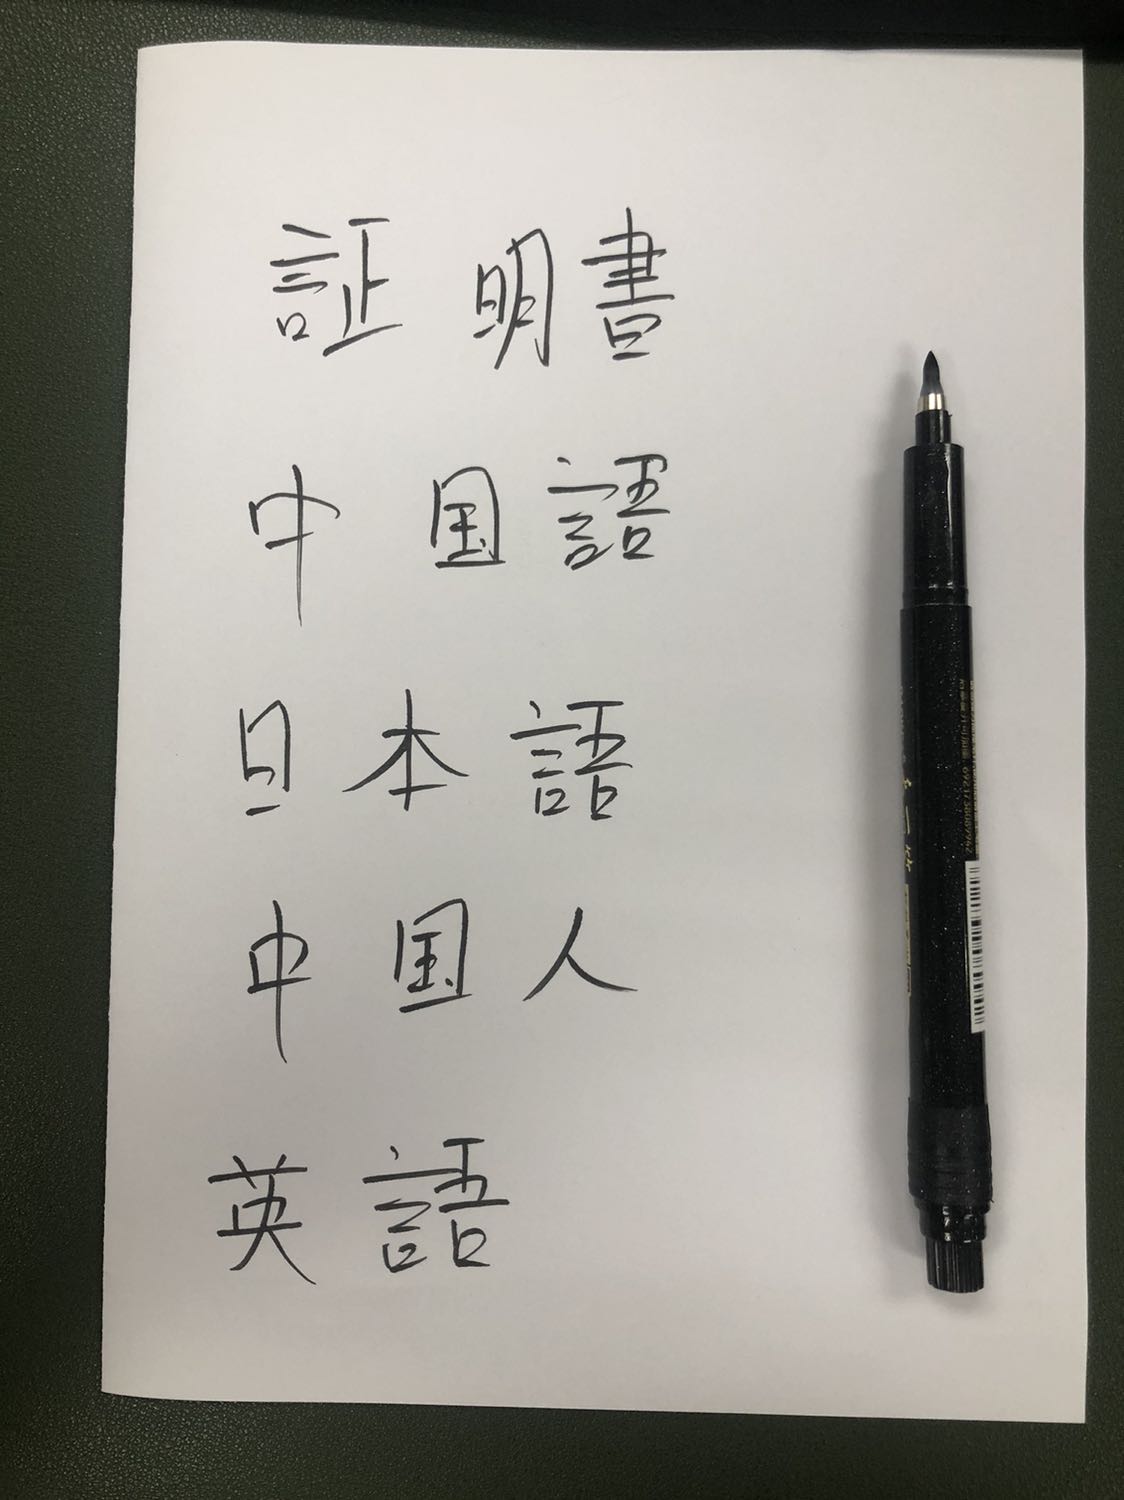 証明書
中国語
日本語
中国人
英語
6921738089962